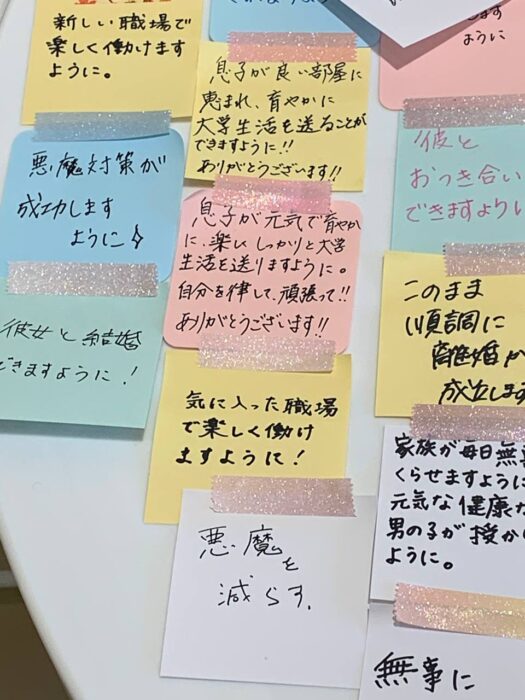 新しい職場で
楽しく働けます
ように。
ように
息子が良い部屋に
恵まれ、育やかに
大学生活を送ることが
できますように!!
ありがとうございます!!
悪魔対策が
成功します
ように
彼と
おつき合い
できますように
息子が元気で育やか
に、楽しい しっかりと大学
生活を送りますように。
自分を律して、頑張って!!
ありがとうございます!!
彼女と結婚
できますように!
このまま
順調に
離婚が
成立します
気に入った職場
で楽しく働け
ますように!
家族が毎日無事
くらせますように
元気な健康な
男の子が授か
ように。
悪魔を
減らす.
無事に